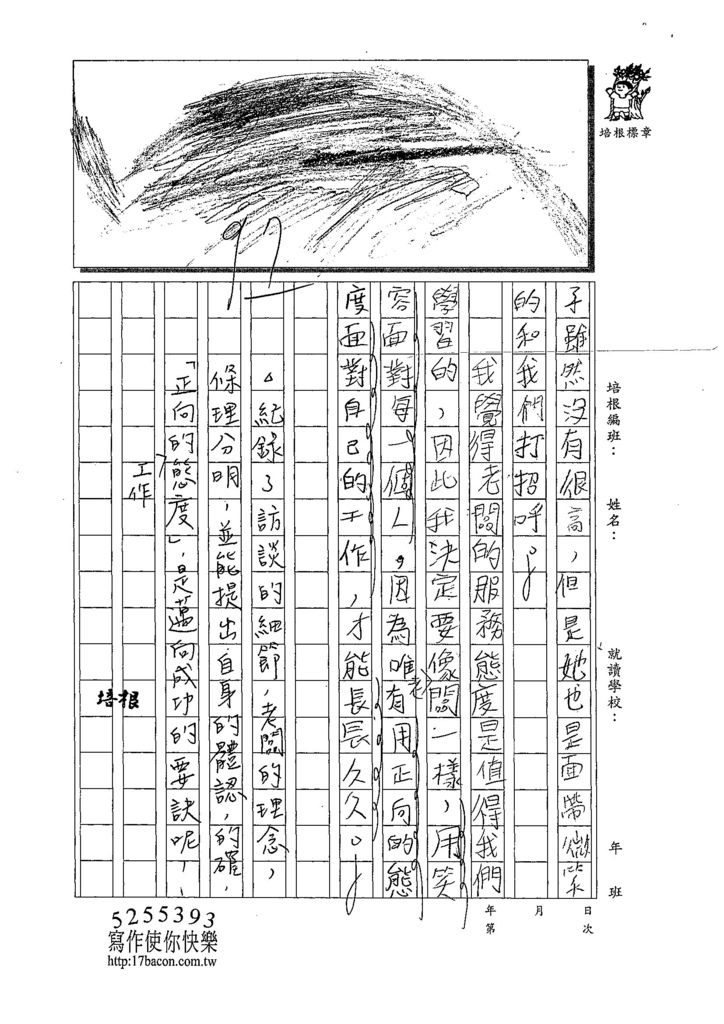 培根標章
培根編班：
姓名：
就讀學校：
年 班
年 月 日
第 次
子雖然沒有很高，但是她也是面帶微笑
的和我們打招呼。
我覺得老闆的服務態度是值得我們
學習的，因此我決定要像老闆一樣，用笑
容面對每一個人，因為唯有用正向的態
度面對自己的工作，才能長長久久。
97
△紀錄了訪談的細節，老闆的理念，
條理分明，並能提出自身的體認，的確，
「正向的工作態度」，是邁向成功的要訣呢！
培根
5255393
寫作使你快樂
http:17bacon.com.tw